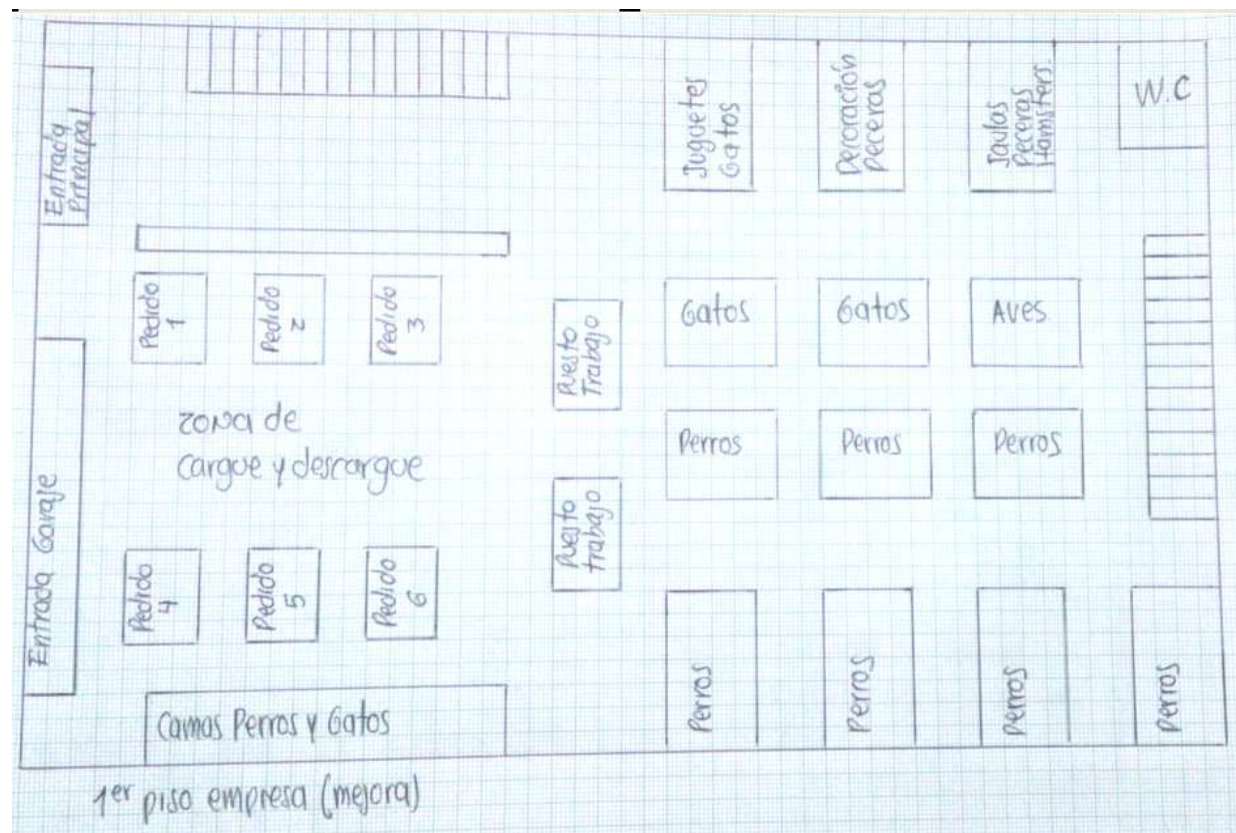 Entrada
Principal
Juguetes
Gatos
Decoración
Peceras
Jaulas
Peceras
Hamsters.
W.C
Pedido
1
Pedido
2
Pedido
3
Puesto
Trabajo
Gatos
Gatos
Aves
zona de
cargue y descargue
Perros
Perros
Perros
Entrada Garaje
Puesto
trabajo
Pedido
4
Pedido
5
Pedido
6
Perros
Perros
Perros
Perros
Camas Perros y Gatos
1er piso empresa (mejora)